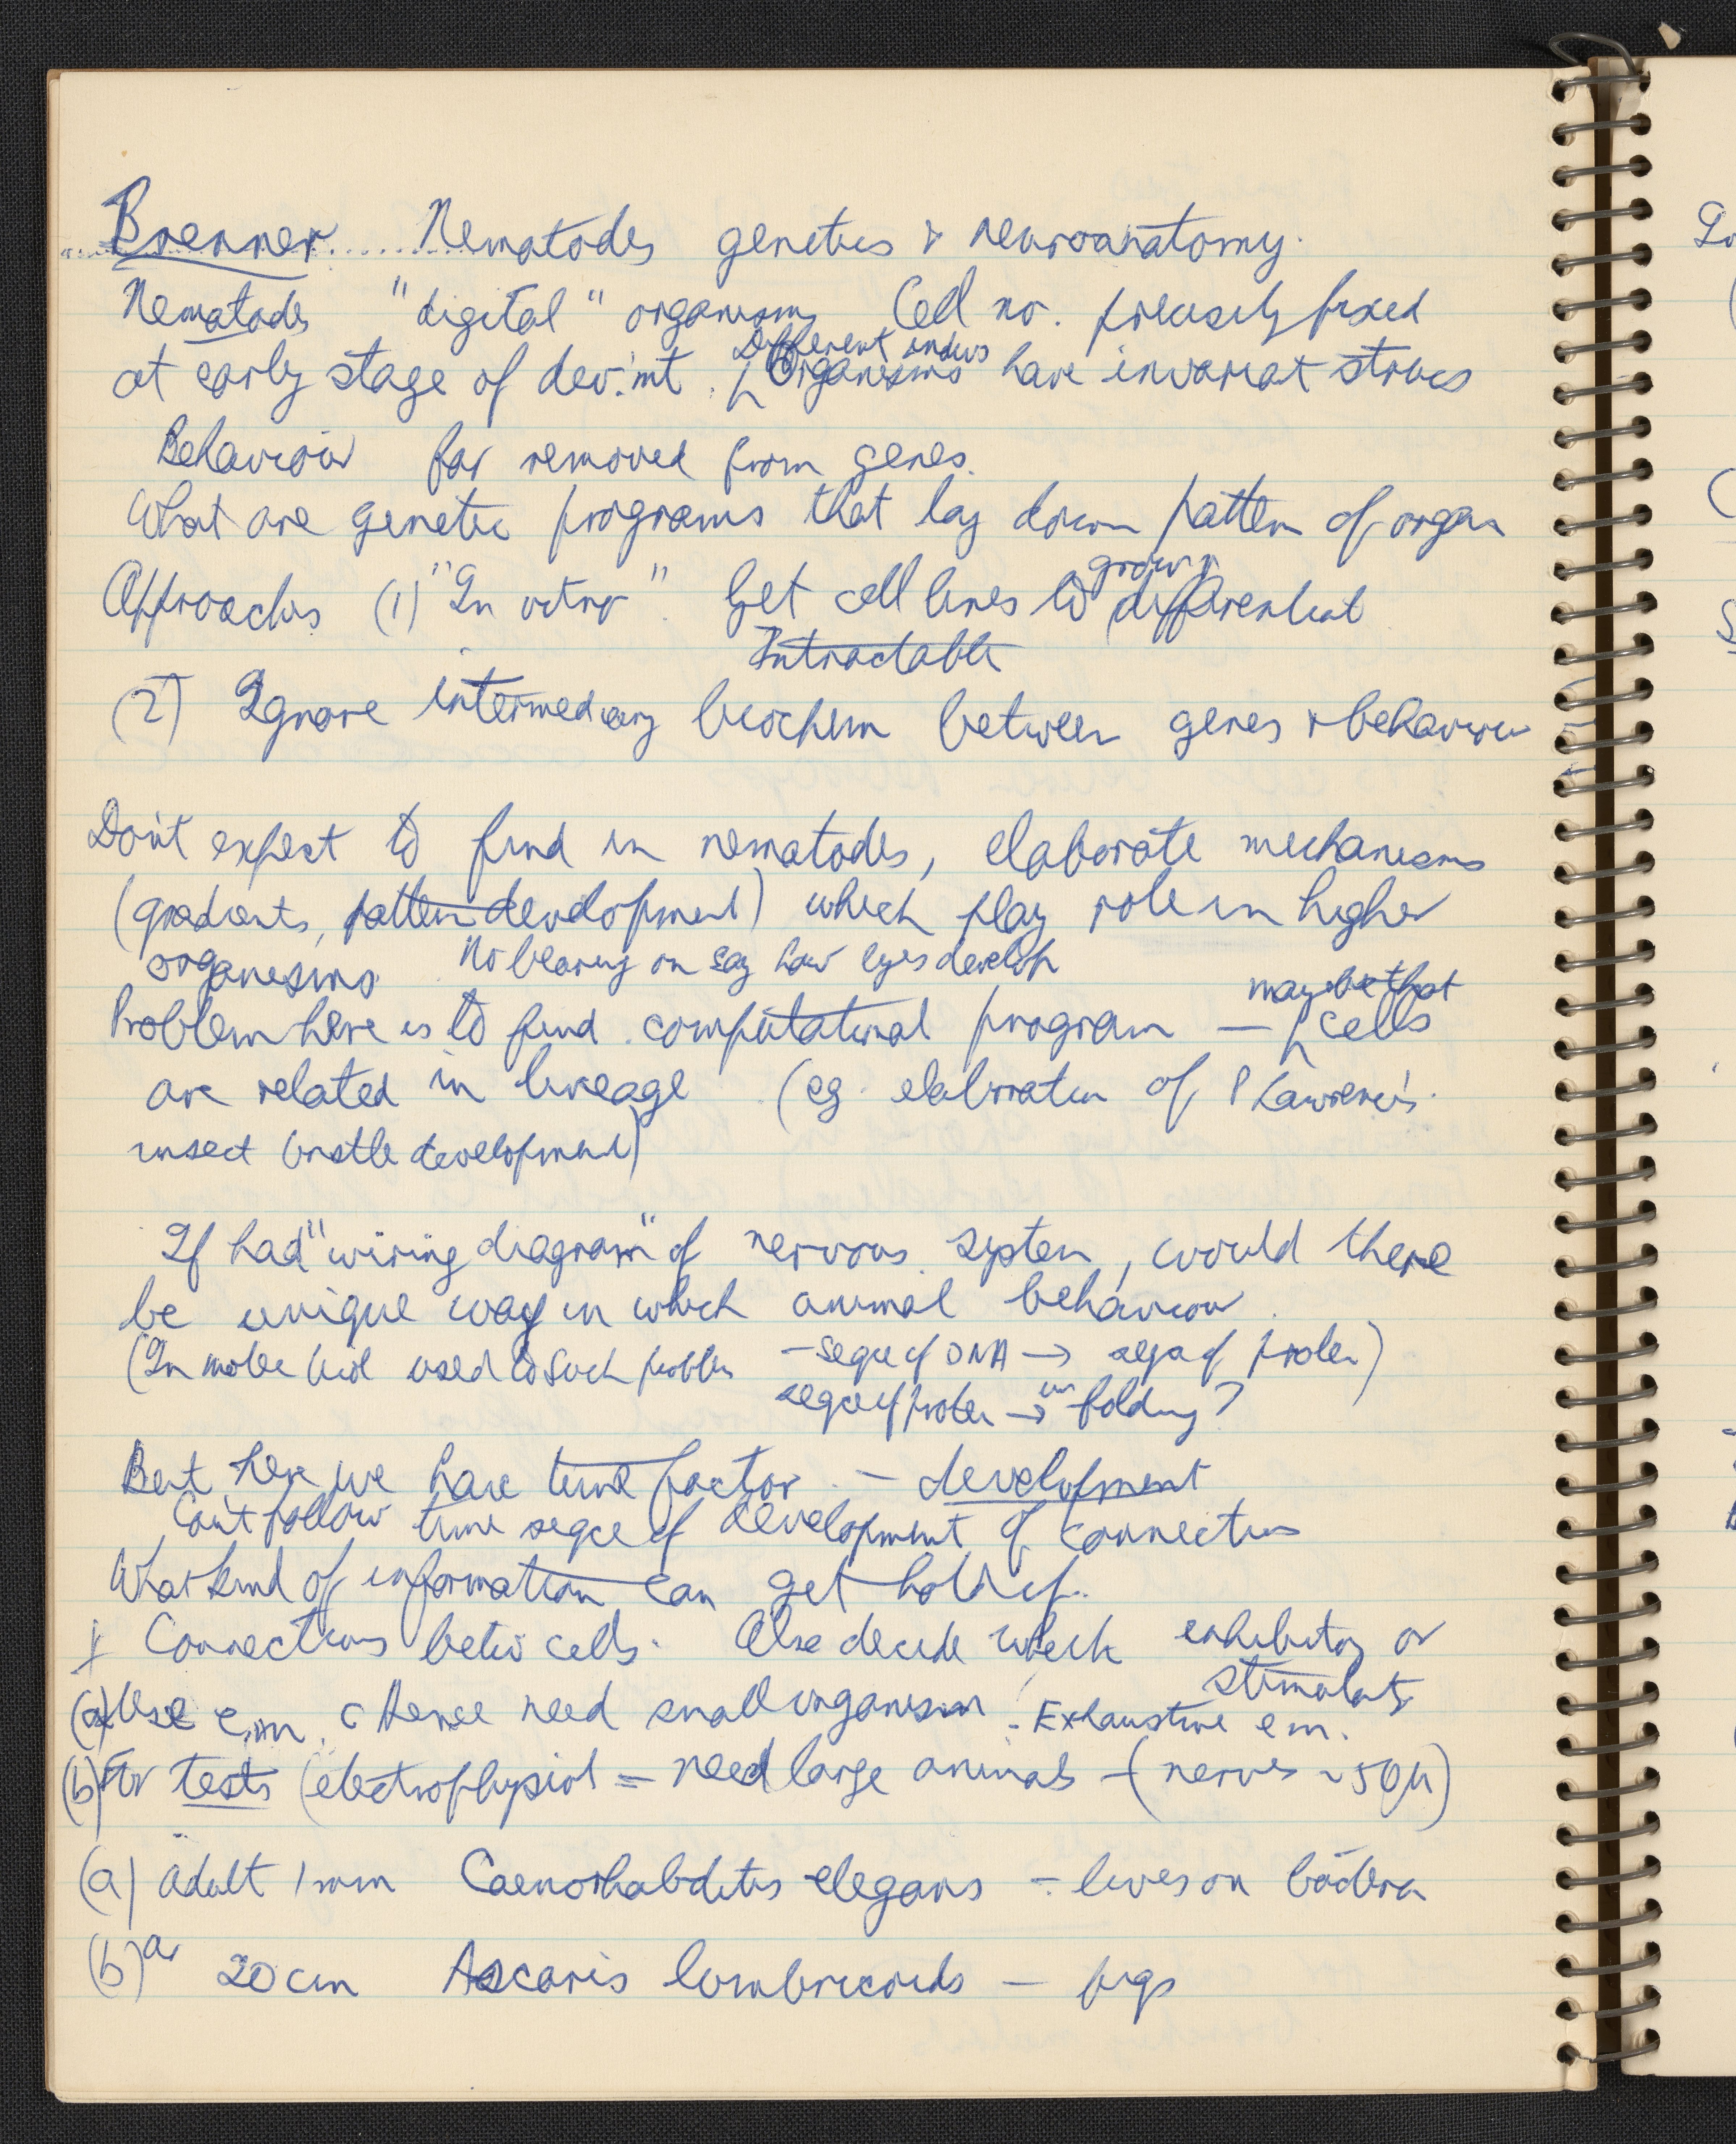 Brenner Nematodes genetics & neuroanatomy.
Nematodes "digital" organisms Cell no. precisely fixed
at early stage of dev:mt. Different indivs Organisms have invariat strucs
Behaviour far removed from genes.
What are genetic programs that lay down pattern of organ
Approaches (1) "In vitro" Get cell lines to grow & differentiat
Intractable
(2) Ignore intermediary biochem between genes & behaviour
Don't expect to find in nematodes, elaborate mechanisms
(gradients, pattern development) which play role in higher
organisms. No bearing on say how eyes develop
Problem here is to find computational program — may be that cells
are related in lineage (eg. elaboration of P Lawrence's
insect bristle development)
If had "wiring diagram" of nervous system, would there
be unique way in which animal behaviour.
(In molec biol used to such problem — seqce of DNA → seqce of protein)
seqce of protein → folding?
But here we have time factor — development
Can't follow time seqce of development of connections
What kind of information can get hold of.
I Connections betw cells. Also decide which inhibitory or
stimulatory
(a) Use e.m. Hence need small organism. Exhaustive em.
(b) For tests (electrophysiol — need large animals — (nerves ~50μ)
(a) adult 1mm Caenorhabditis elegans — lives on bacteria
(b) a 20cm Ascaris lumbricoids — pigs